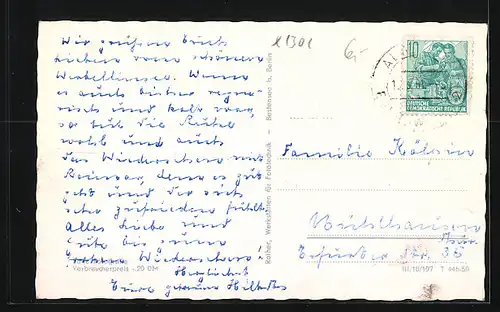 Wir grüßen Euch
Lieben vom schönen
Werbellinsee. Wenn
es auch bisher regne-
risch und kalt war,
so tut die Ruhe
wohl und auch
das Wiedersehen mit
, dem es gut
geht und der sich
sehr zufrieden fühlt.
Alles Liebe und
Gute bis zum
Wiedersehen!
Herzlichst
Eure getreuen
Verbraucherpreis -,20 DM
x1301
6,-
10
DEUTSCHE
DEMOKRATISCHE REPUBLIK
Rather, Werkstätten für Fototechnik - Bestensee b. Berlin
Familie Kälpin
Mühlhausen
Thür.
Erfurter Str. 35
III/18/197 T 446/59